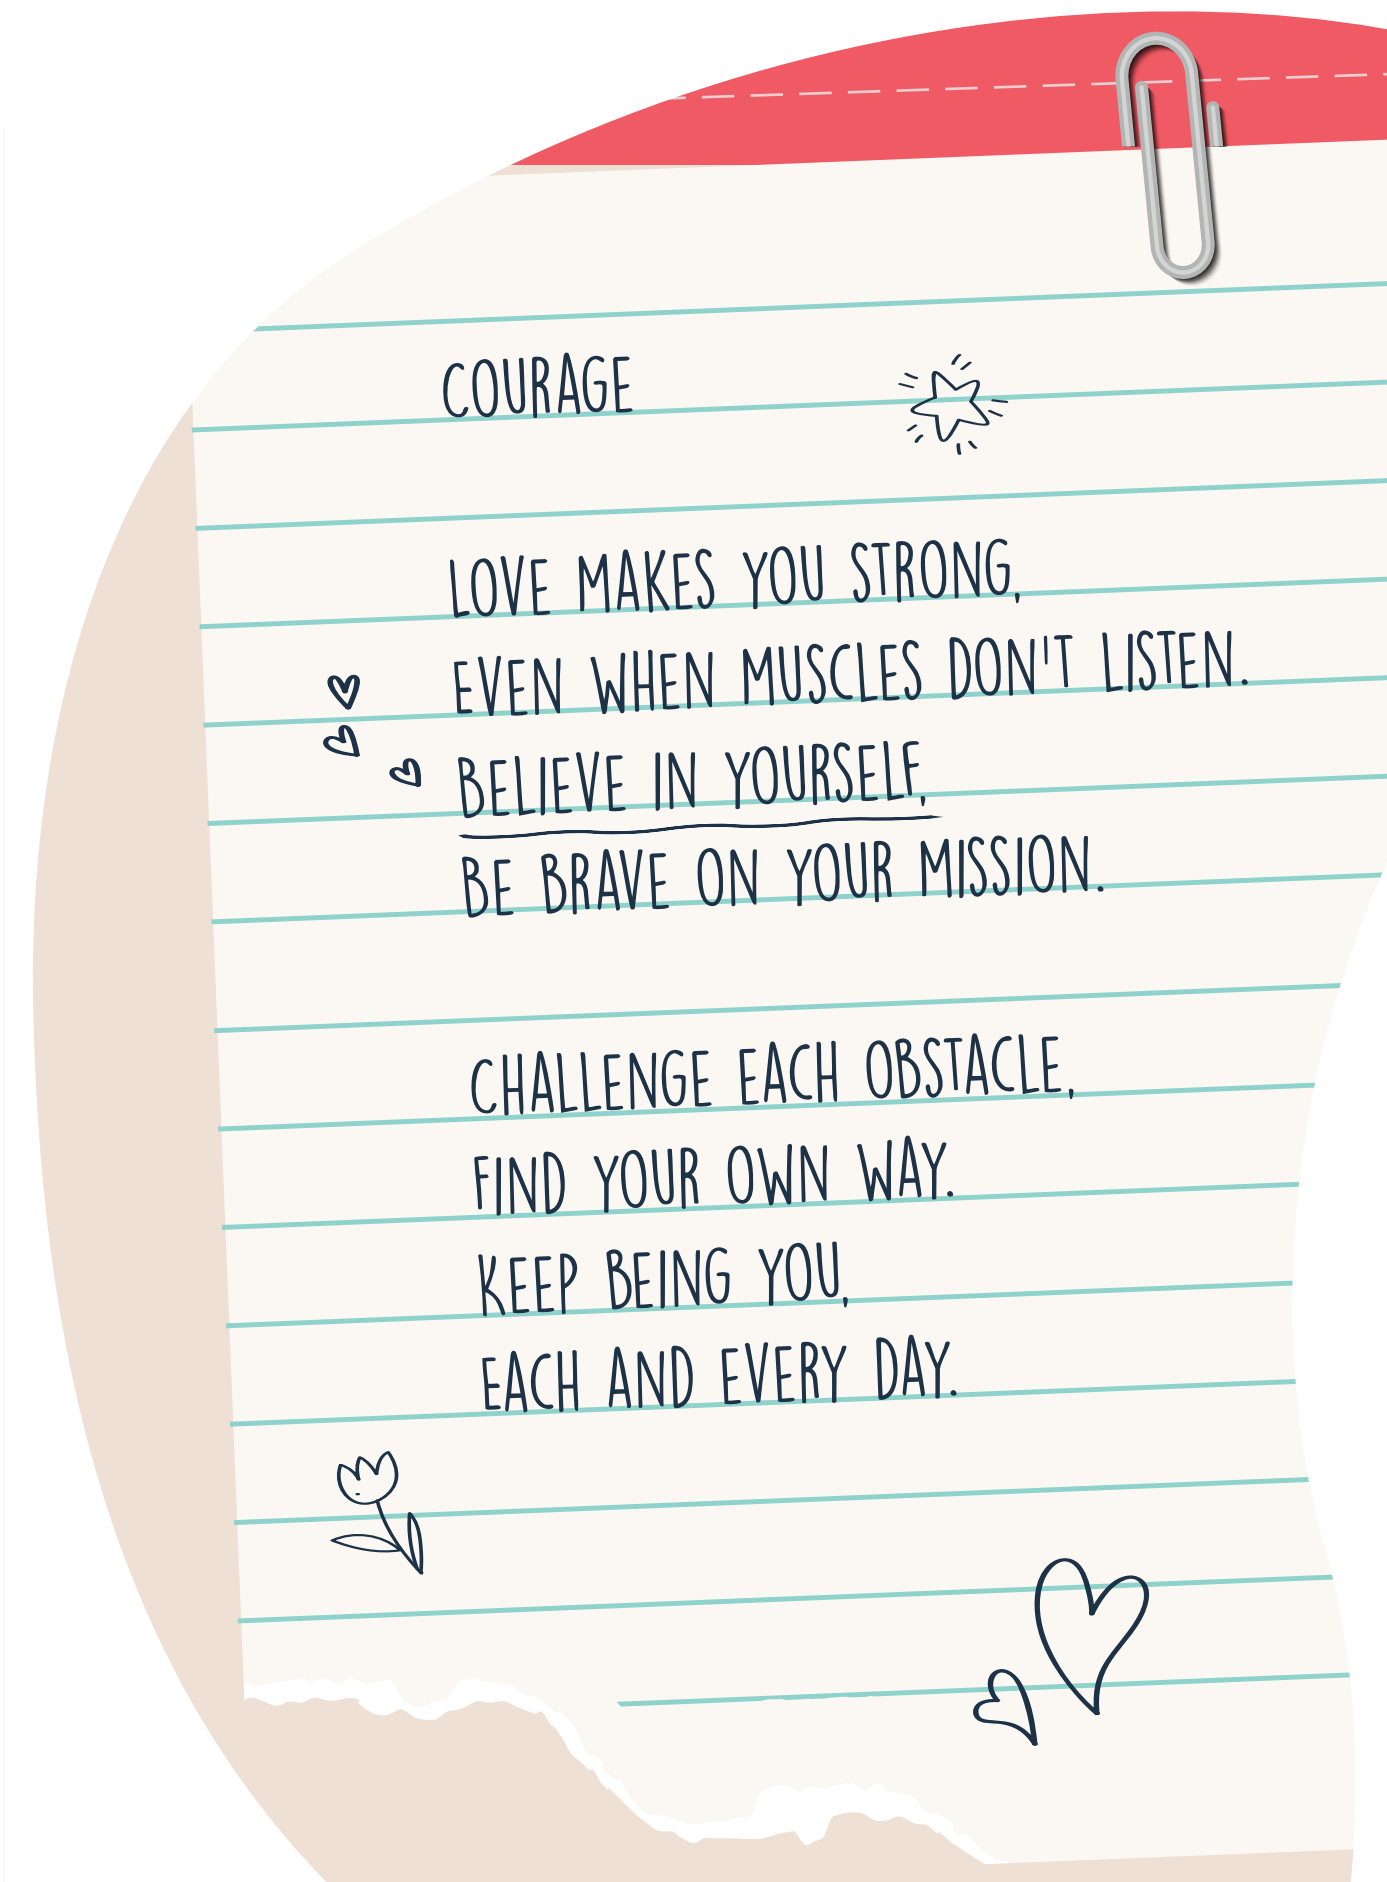 COURAGE
LOVE MAKES YOU STRONG,
EVEN WHEN MUSCLES DON'T LISTEN.
BELIEVE IN YOURSELF,
BE BRAVE ON YOUR MISSION.
CHALLENGE EACH OBSTACLE,
FIND YOUR OWN WAY.
KEEP BEING YOU,
EACH AND EVERY DAY.